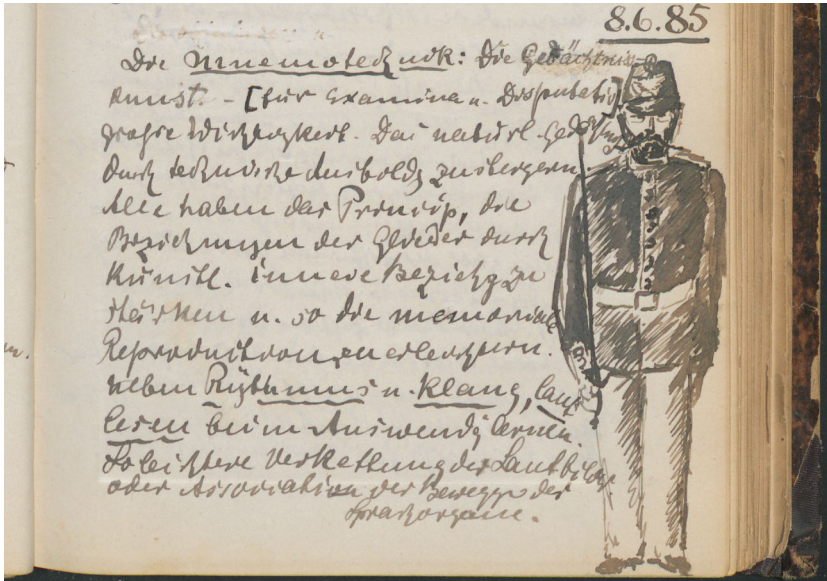 8.6.85
Die Mnemotechnik: Die Gedächtnis-
kunst. - [für Examina u. Disputatio]
große Wichtigkeit. Das natürl.
durch technische Ausbildg zu steigern.
Alle haben das Princip, die
Beziehungen der Glieder durch
künstl. innere Beziehg zu
stärken u. so die memoriale
Reproduction zu erleichtern.
Neben Rhythmus u. Klang, laut
lesen beim Auswendig lernen.
So leichtere Verkettung der Lautbilder
oder Association der Bewegge der
Sprachorgane.